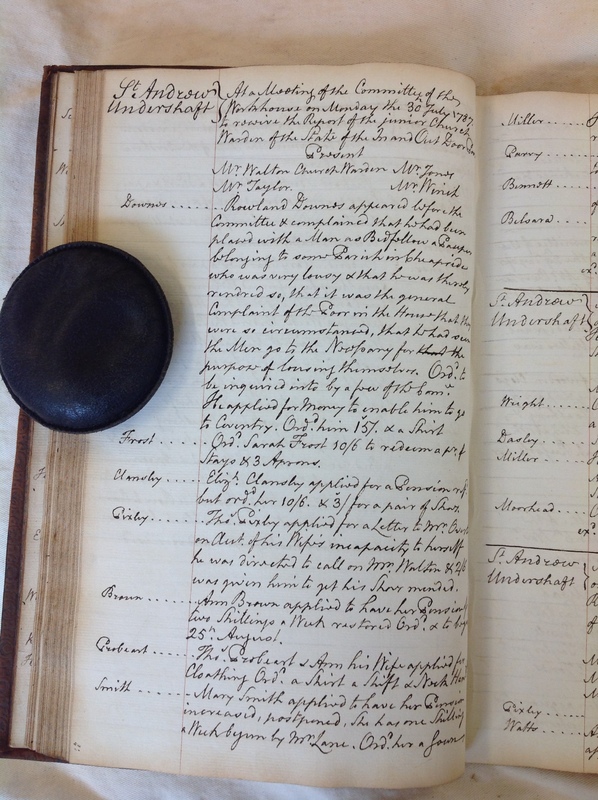 St. Andrew
Undershaft
At a Meeting of the Committee of the
Workhouse on Monday the 30 July 1787
to receive the Report of the junior Church
Warden of the State of the In and Out Door
Present
Mr. Walton Church Warden Mr. Jones
Mr. Taylor. Mr. Winch
Downes Rowland Downes appeared before the
Committee & complained that he had been
placed with a Man as Bedfellow a Pauper
belonging to some Parish in Cheapside
who was very lousy & that he was thereby
rendred so, that it was the general
Complaint of the Poor in the House that they
were so circumstanced, that he had seen
the Men go to the Necessary for that the
purpose of lousing themselves. Ord. to
be inquired into by a few of the Com.e
He applied for Money to enable him to go
to Coventry. Ord.d him 15/. & a Shirt
Frost Ord.d Sarah Frost 10/6 to redeem a pr. of
Stays & 3 Aprons.
Clansby Eliz.h Clansby applied for a Pension
but ord.d her 10/6. & 3/ for a pair of Shoes.
Pixley Tho.s Pixley applied for a Letter to Mr.
on Acct. of his Wife's incapacity to herself
he was directed to call on Mr. Walton & 2/6
was given him to get his Shoes mended.
Brown Ann Brown applied to have her Pension
two Shillings a Week restored Ord.d & to begin
25th August.
Probeart Tho.s Probeart & Ann his Wife applied for
Cloathing Ord.d a Shirt a Shift & Neck
Smith Mary Smith applied to have her Pension
increased, postponed, She has one Shilling
a Week begun by Mr. Lane. Ord.d her a Gown
Miller
Parry
Bennett
Belsara
St. Andrew
Undershaft
Wright
Dasley
Miller
Moorhead
St. Andrew
Undershaft
Pixley
Watts